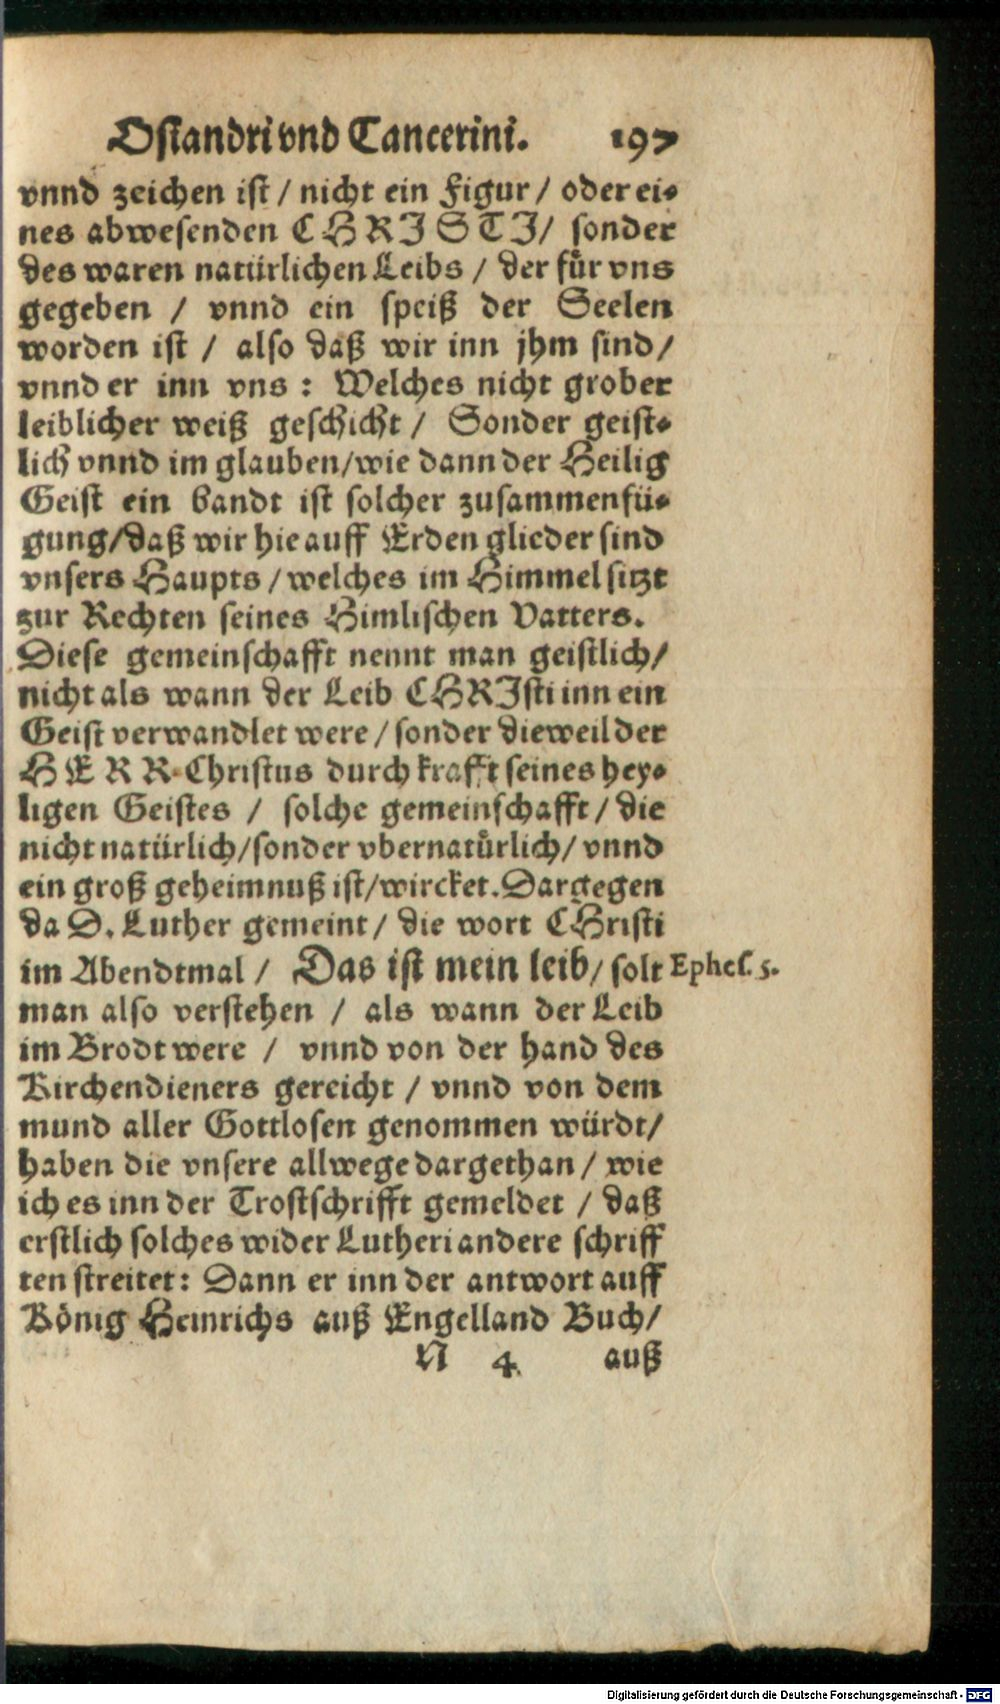 Ostandri vnd Cancerini. 197
vnnd zeichen ist / nicht ein Figur / oder ei-
nes abwesenden CHRISTI / sonder
des waren natürlichen Leibs / der für vns
gegeben / vnnd ein speiß der Seelen
worden ist / also daß wir inn jhm sind /
vnnd er inn vns : Welches nicht grober
leiblicher weiß geschicht / Sonder geist-
lich vnnd im glauben / wie dann der Heilig
Geist ein bandt ist solcher zusammenfü-
gung / daß wir hie auff Erden glieder sind
vnsers Haupts / welches im Himmel sitzt
zur Rechten seines Himlischen Vatters.
Diese gemeinschafft nennt man geistlich /
nicht als wann der Leib CHRIsti inn ein
Geist verwandlet were / sonder dieweil der
HERR Christus durch krafft seines hey-
ligen Geistes / solche gemeinschafft / die
nicht natürlich / sonder vbernatürlich / vnnd
ein groß geheimnuß ist / wircket. Dargegen
da D. Luther gemeint / die wort CHristi
im Abendtmal / Das ist mein leib / solt Ephes. 5.
man also verstehen / als wann der Leib
im Brodt were / vnnd von der hand des
Kirchendieners gereicht / vnnd von dem
mund aller Gottlosen genommen würdt /
haben die vnsere allwege dargethan / wie
ich es inn der Trostschrifft gemeldet / daß
erstlich solches wider Lutheri andere schriff
ten streitet : Dann er inn der antwort auff
König Heinrichs auß Engelland Buch /
N 4 auß
Digitalisierung gefördert durch die Deutsche Forschungsgemeinschaft - DFG